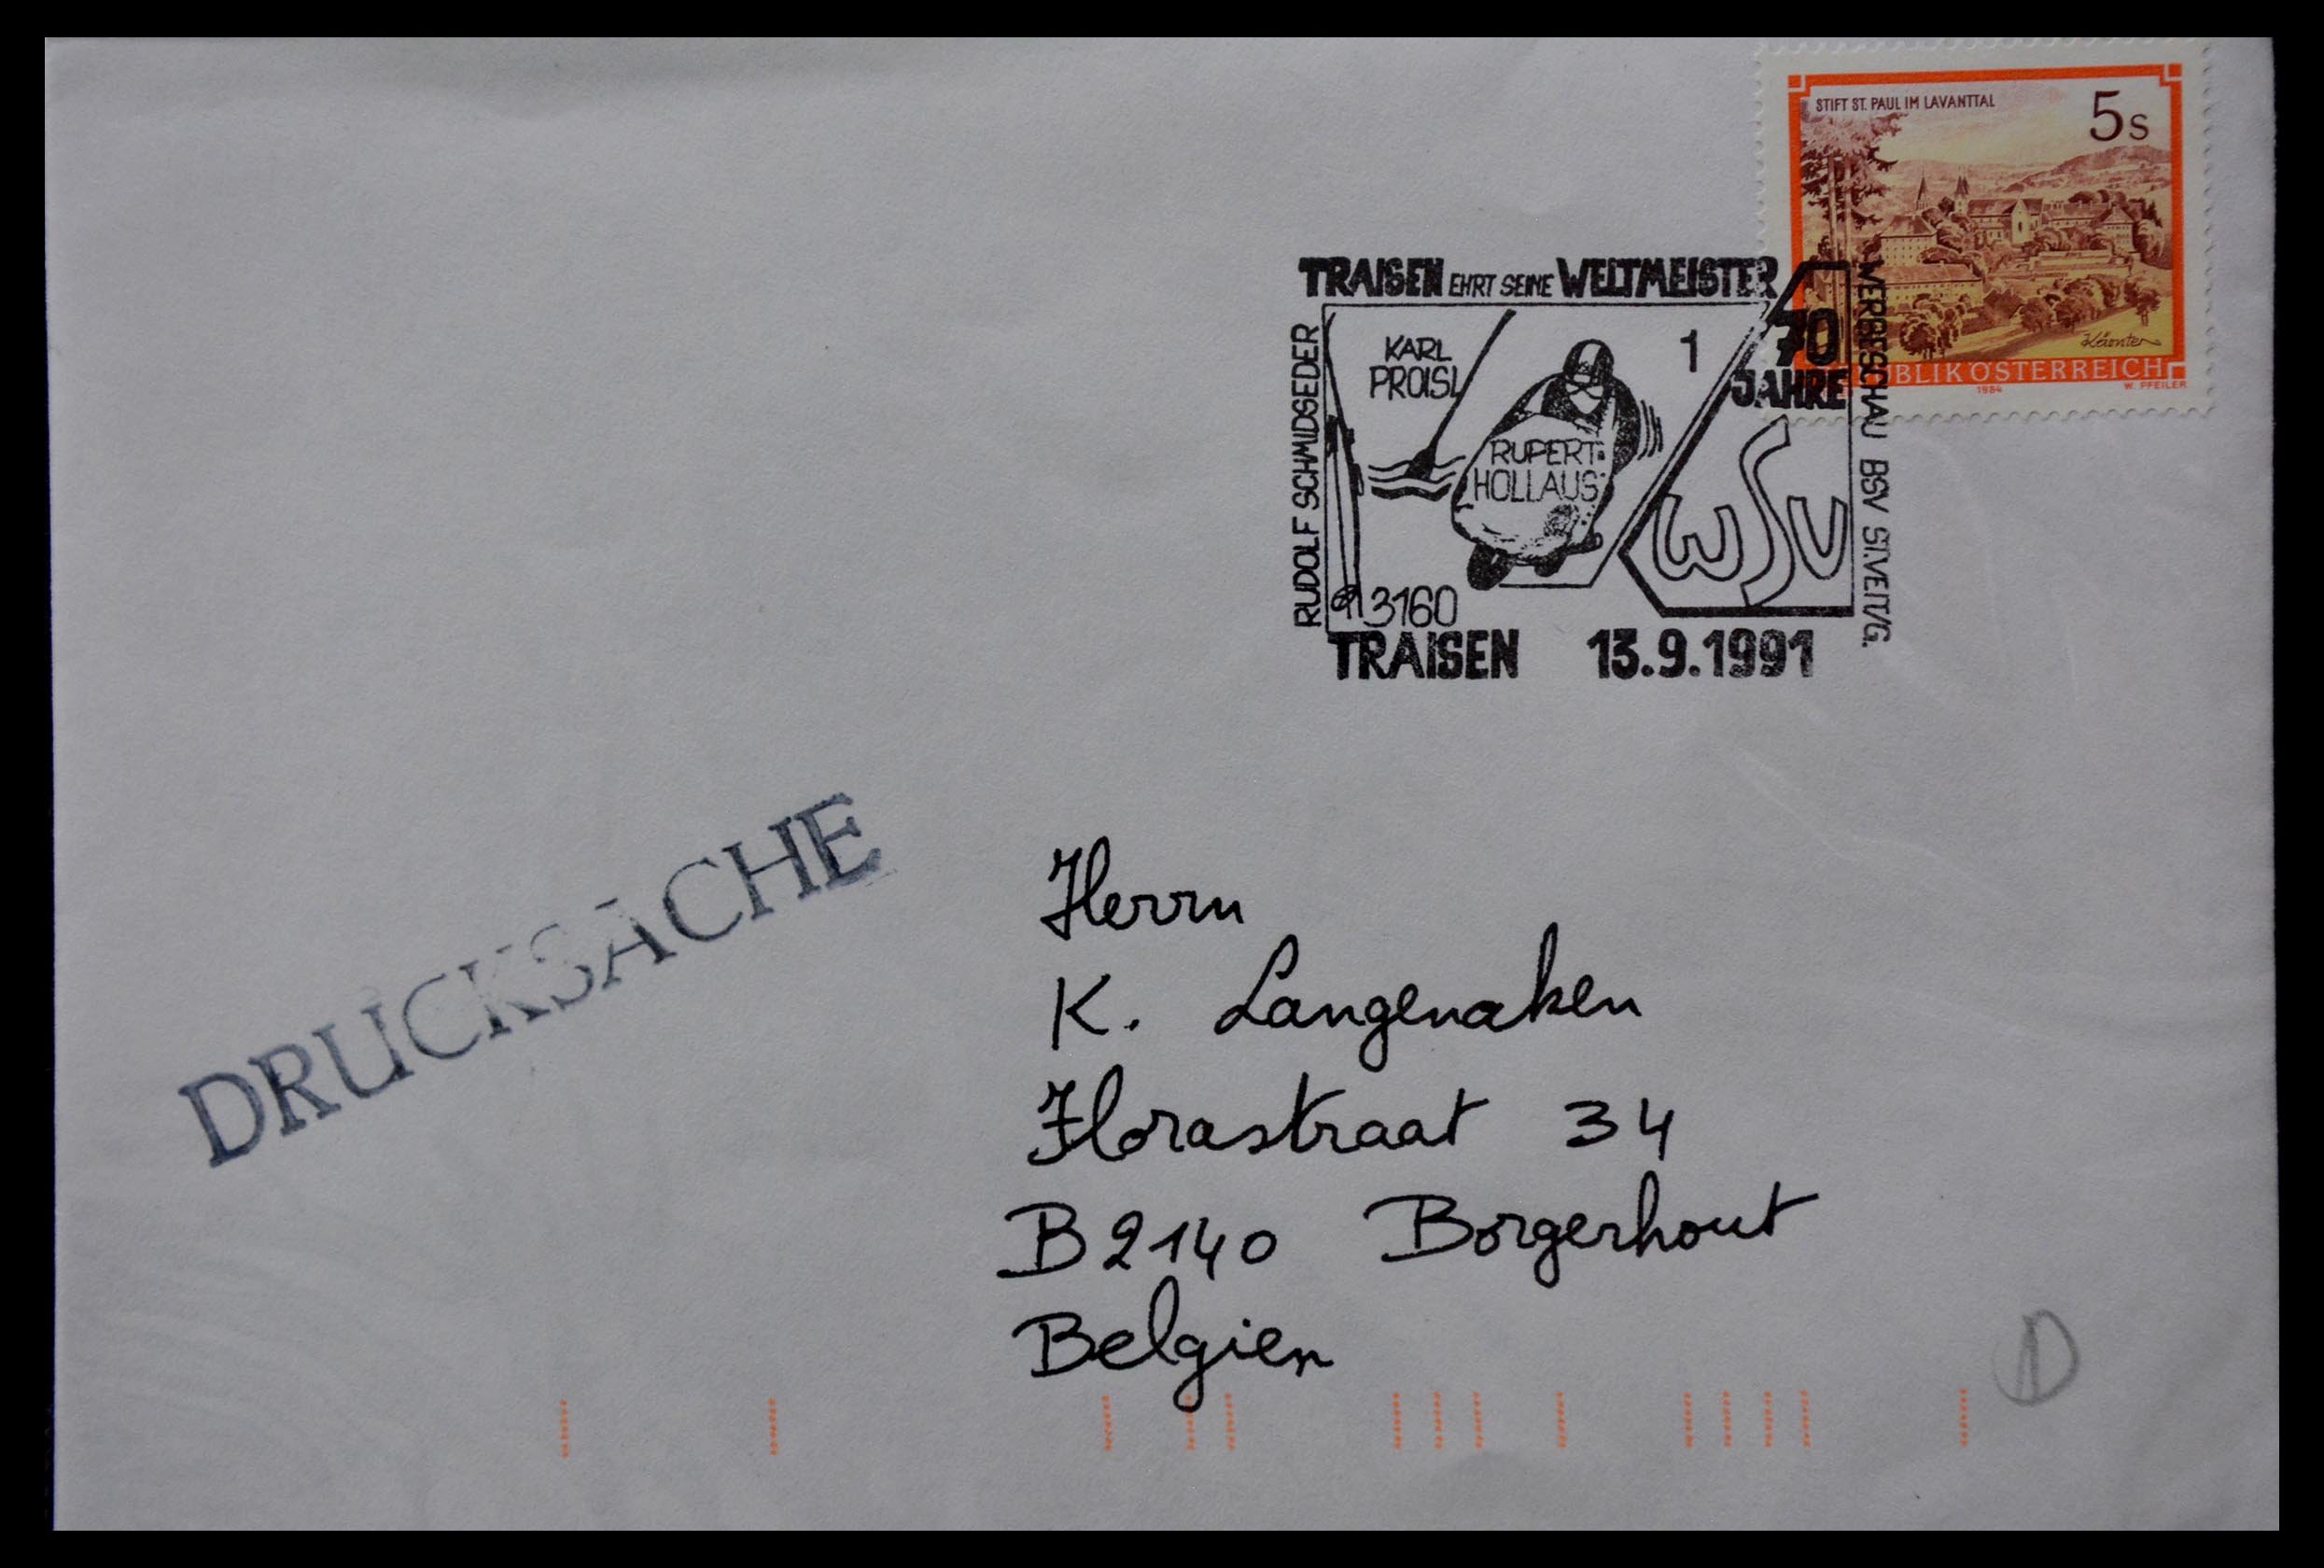 STIFT ST. PAUL IM LAVANTTAL
5s
Kärnten
UBLIK ÖSTERREICH
1984
W. PFEILER
TRAISEN EHRT SEINE WELTMEISTER
RUDOLF SCHMIDSEDER
KARL
PROISL
1
RUPERT
HOLLAUS
70
JAHRE
WSV
WERBESCHAU BSV ST.VEIT/G.
3160
TRAISEN 13.9.1991
DRUCKSACHE
Herrn
K. Langenaken
Florastraat 34
B2140 Borgerhout
Belgien